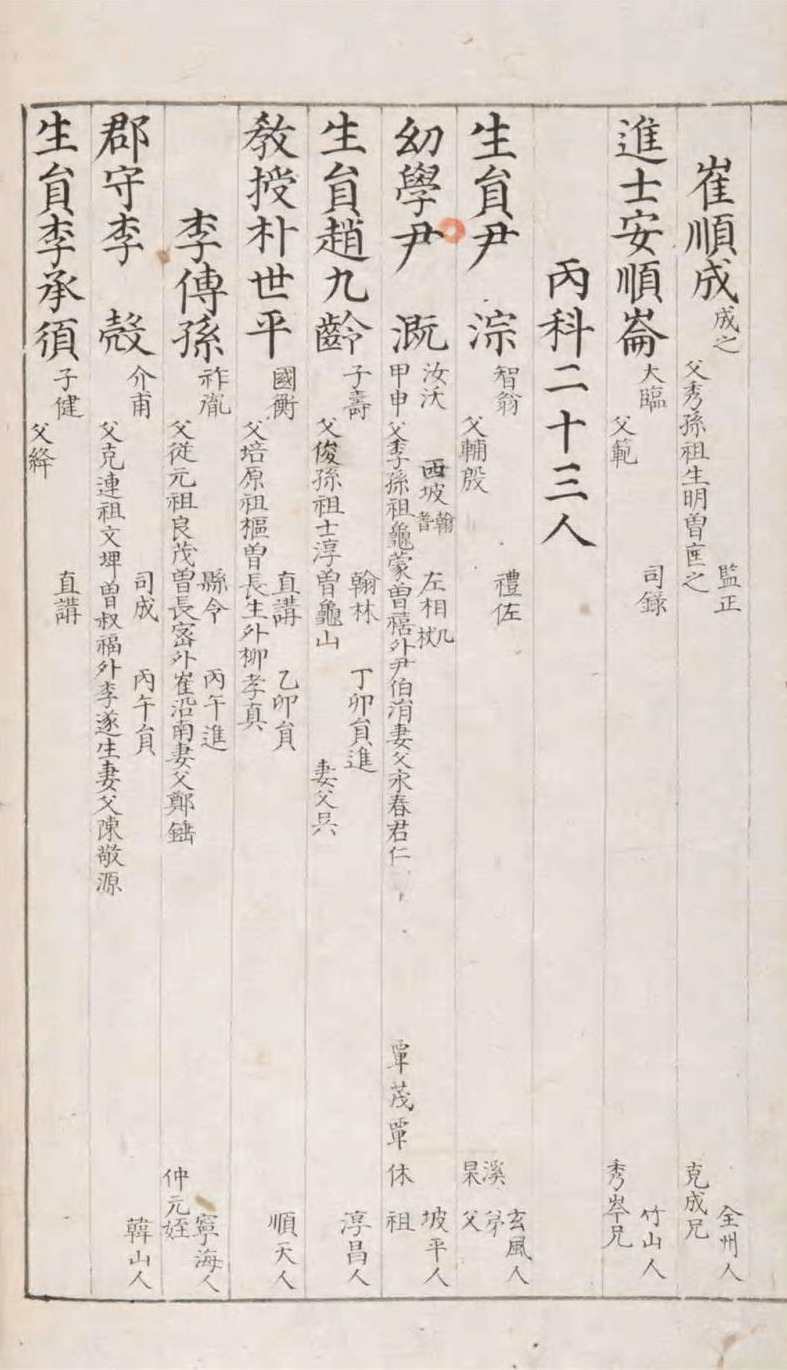 崔順成 成之 監正 全州人
父秀孫祖生明曾匡之 克成兄
進士安順崙 大臨 司錄 竹山人
父範 秀岑兄
丙科二十三人
生負尹 淙 智翁 禮佐 玄風人
父輔殷 溪弟 杲父
幼學尹 漑 汝沃 西坡 翰 耆 左相 几杖 坡平人
甲申 父季孫祖龜蒙曾禧外尹伯涓妻父永春君仁 覃茂覃休祖
生負趙九齡 子壽 翰林 丁卯負進 淳昌人
父俊孫祖士淳曾龜山 妻父吳
敎授朴世平 國衡 直講 乙卯負 順天人
父培原祖樞曾長生外柳孝真
李傳孫 祚胤 縣令 丙午進 寧海人
父從元祖良茂曾長宻外崔沿南妻父鄭 仲元姪
郡守李 殼 介甫 司成 丙午負 韓山人
父克連祖文埤曾叔福外李遂生妻父陳敬源
生負李承湏 子健 直講
父絳